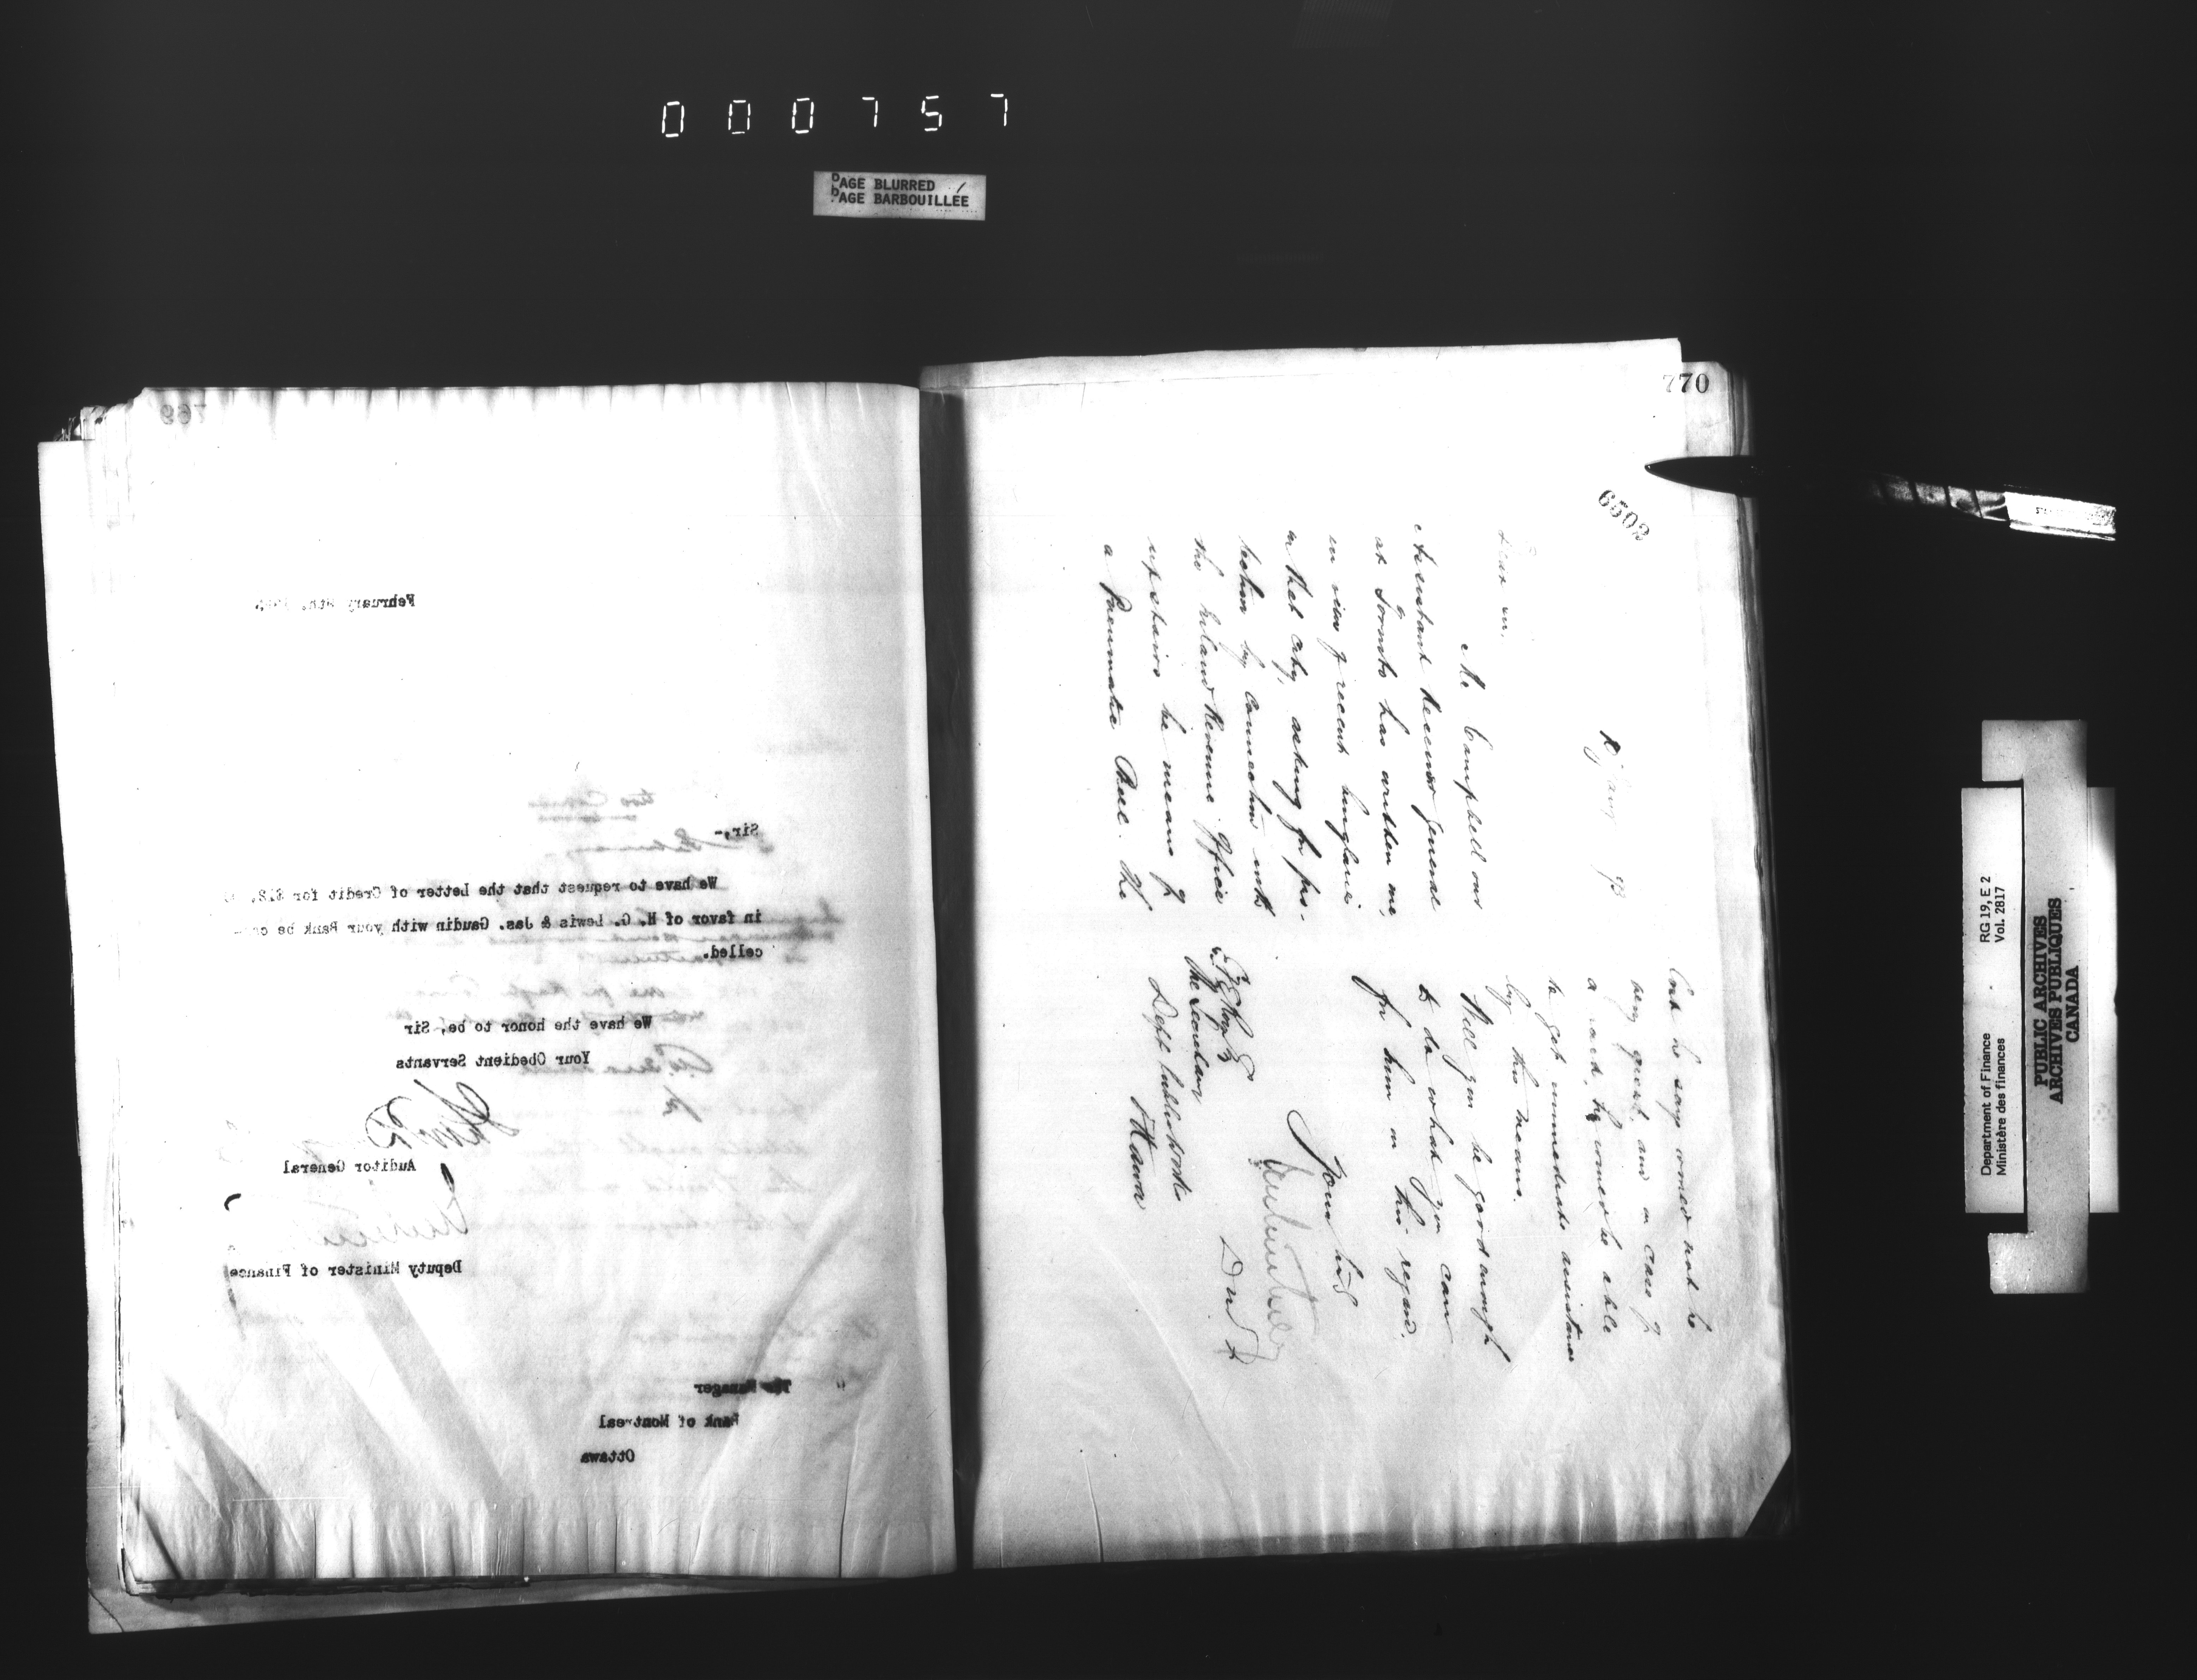 000757
PAGE BLURRED
PAGE BARBOUILLÉE
769
February
Sir,-
We have to request that the Letter of Credit for $12,
in favor of H. G. Lewis & Jas. Gaudin with your Bank be can-
celled.
We have the honor to be, Sir
Your Obedient Servants
Auditor General
Deputy Minister of Finance
The Manager
Bank of Montreal
Ottawa
770
6503
Dear Sir.
Mr Campbell our
Assistant Receiver General
at Toronto has written me,
in view of recent burglaries
in that city, asking for pro-
tection by connection with
the Inland Revenue Office
upstairs be means of
a Pneumatic Bell. The
cost he says would not be
very great, and in case of
a raid, he would be able
to get immediate assistance
by this means.
Will you be good enough
to do what you can
for him in this regard.
Yours truly
D M F
The Secretary
Dept Public Works
Ottawa
Department of Finance
Ministère des finances
RG 19, E 2
Vol. 2817
PUBLIC ARCHIVES
ARCHIVES PUBLIQUES
CANADA